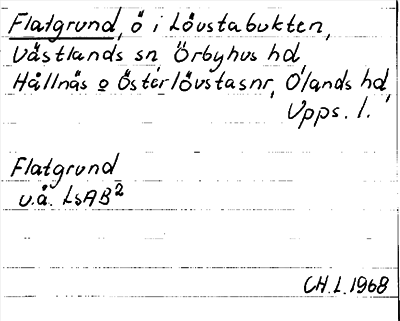 Flatgrund, ö i Lövstabukten,
Västlands sn, Örbyhus hd,
Hållnäs o Österlövstasnr, Olands hd,
Upps. l.
Flatgrund
u.å. LsAB²
CH.L.1968